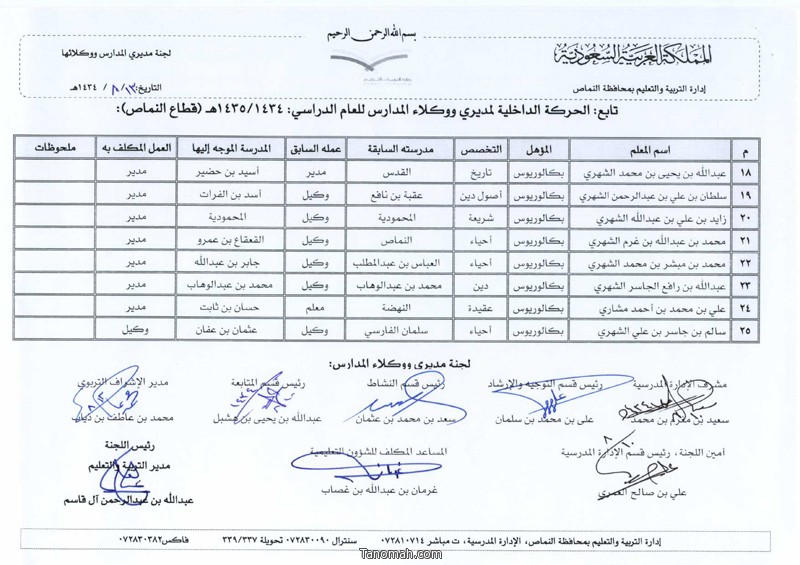 بسم الله الرحمن الرحيم
المملكة العربية السعودية
إدارة التربية والتعليم بمحافظة النماص
لجنة مديري المدارس ووكلائها
التاريخ: ١٣/ ٨ / ١٤٣٤هـ
تابع: الحركة الداخلية لمديري ووكلاء المدارس للعام الدراسي: ١٤٣٥/١٤٣٤هـ (قطاع النماص):
م اسم المعلم المؤهل التخصص مدرسته السابقة عمله السابق المدرسة الموجه إليها العمل المكلف به ملحوظات
١٨ عبدالله بن يحيى بن محمد الشهري بكالوريوس تاريخ القدس مدير أسيد بن حضير مدير
١٩ سلطان بن علي بن عبدالرحمن الشهري بكالوريوس أصول دين عقبة بن نافع وكيل أسد بن الفرات مدير
٢٠ زايد بن علي بن عبدالله الشهري بكالوريوس شريعة المحمودية وكيل المحمودية مدير
٢١ محمد بن عبدالله بن غرم الشهري بكالوريوس أحياء النماص وكيل القعقاع بن عمرو مدير
٢٢ محمد بن مبشر بن محمد الشهري بكالوريوس أحياء العباس بن عبدالمطلب وكيل جابر بن عبدالله مدير
٢٣ عبدالله بن رافع الجاسر الشهري بكالوريوس دين محمد بن عبدالوهاب وكيل محمد بن عبدالوهاب مدير
٢٤ علي بن محمد بن أحمد مشاري بكالوريوس عقيدة النهضة معلم حسان بن ثابت مدير
٢٥ سالم بن جاسر بن علي الشهري بكالوريوس أحياء سلمان الفارسي وكيل عثمان بن عفان وكيل
لجنة مديري ووكلاء المدارس:
مشرف الإدارة المدرسية رئيس قسم التوجيه والإرشاد رئيس قسم النشاط رئيس قسم المتابعة مدير الإشراف التربوي
سعيد بن مغرم بن محمد علي بن محمد بن سلمان سعد بن محمد بن عثمان عبدالله بن يحيى بن مشبل محمد بن عاطف بن ذياب
أمين اللجنة ، رئيس قسم الإدارة المدرسية المساعد المكلف للشؤون التعليمية رئيس اللجنة
مدير التربية والتعليم
علي بن صالح العمري غرمان بن عبدالله بن غصاب عبدالله بن عبدالرحمن آل قاسم
إدارة التربية والتعليم بمحافظة النماص، الإدارة المدرسية، ت مباشر ٠٧٢٨١٠٧١٤ سنترال ٠٧٢٨٣٠٠٩٠ تحويلة ٣٣٩/٣٣٧ فاكس٠٧٢٨٣٠٣٨٢
Tanomah.com